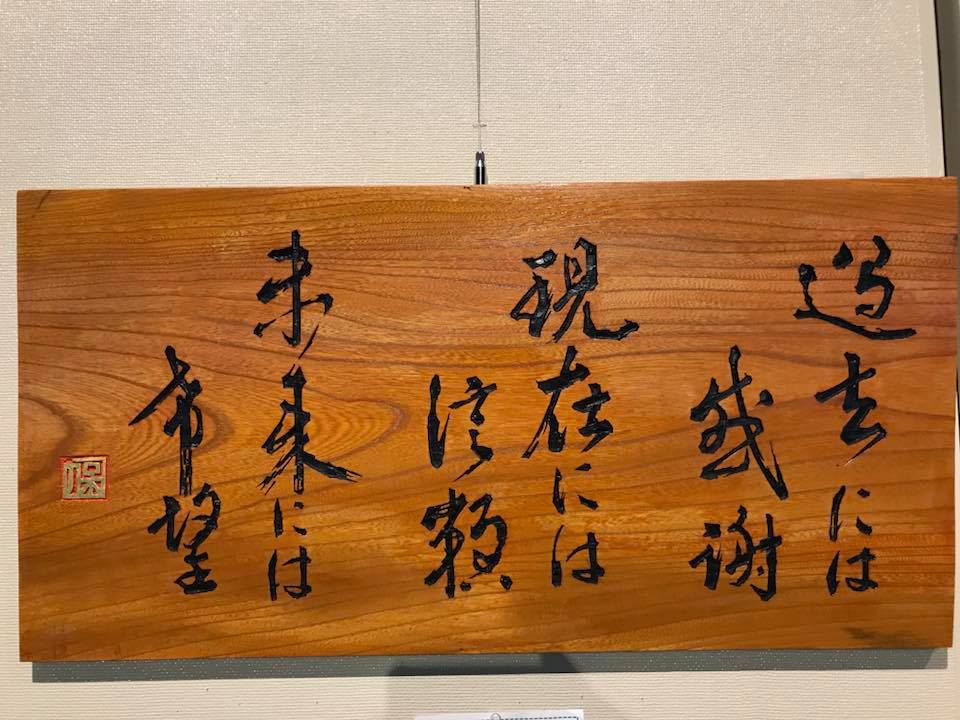 過去には
感謝
現在には
信頼
未来には
希望
保